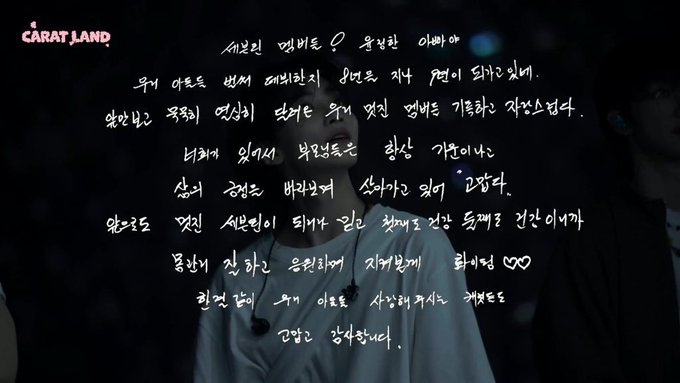 CARAT LAND
세븐틴 멤버들! 윤정한 아빠야
우리 아들들 벌써 데뷔한지 8년을 지나 9년이 되가고 있네.
앞만보고 묵묵히 열심히 달려온 우리 멋진 멤버들 기특하고 자랑스럽다.
너희가 있어서 부모님들은 항상 기운이나고
삶의 긍정을 바라보며 살아가고 있어 "고맙다."
앞으로도 멋진 세븐틴이 되리라 믿고 첫째도 건강 둘째도 건강이니까
몸관리 잘하고 응원하며 지켜볼게 화이팅♡♡
한결같이 우리 아들들 사랑해주시는 캐럿들도
고맙고 감사합니다.